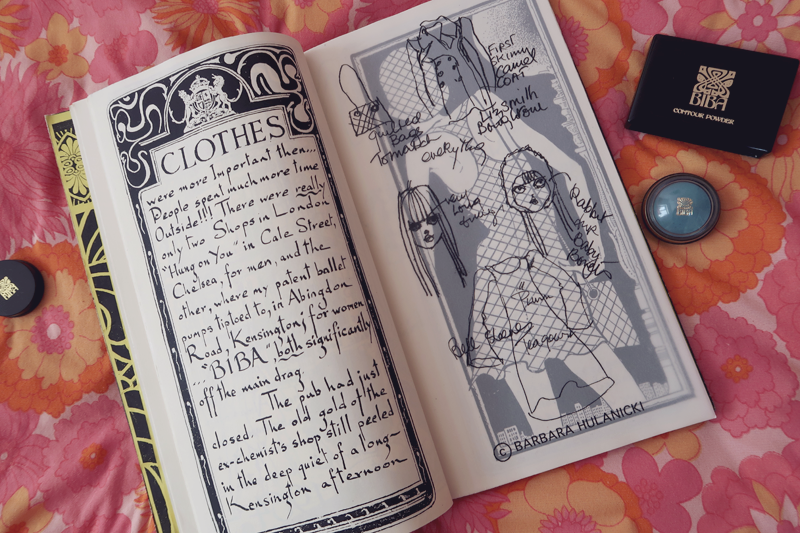 CLOTHES
were more important then...
People spent much more time
Outside!!! There were really
only two Shops in London
"Hung on You" in Cale Street,
Chelsea, for men, and the
other, where my patent ballet
pumps tiptoed to, in Abingdon
Road, Kensington, for women
..."BIBA" both significantly
off the main drag.
The pub had just
closed. The old gold of the
ex-chemist's shop still peeled
in the deep quiet of a long-
Kensington afternoon
First
Skinny
Camel
COAT
Quilted
Bags
To match
everything
very
long
fringe
Rabbit
© BARBARA HULANICKI
BIBA
CONTOUR POWDER